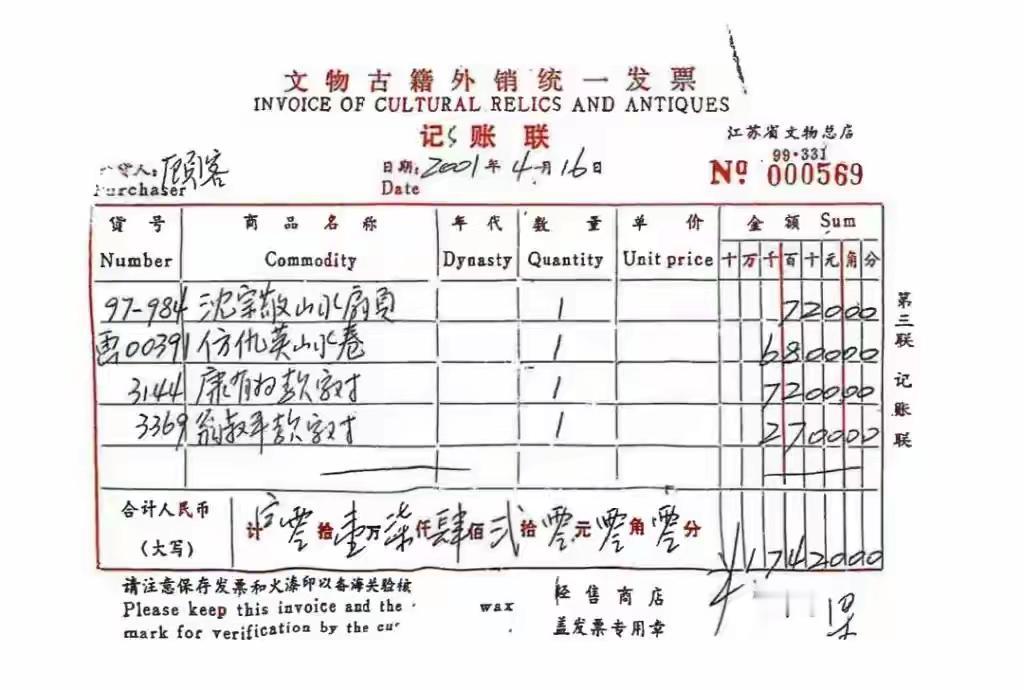 文物古籍外销统一发票
INVOICE OF CULTURAL RELICS AND ANTIQUES
记账联
江苏省文物总店
99·331
Nº 000569
货人: 顾客
Purchaser
日期: 2001年4月16日
Date
货号 商品名称 年代 数量 单价 金额 Sum
Number Commodity Dynasty Quantity Unit price 十万千百十元角分
97-984 沈宗敬山水扇页 1 72000
画00391 仿仇英山水卷 1 680000
3144 康有为款字对 1 720000
3369 翁叔平款字对 1 270000
合计人民币
(大写)
计 零拾壹万柒仟肆佰贰拾零元零角零分 ¥1742000
第三联 记账联
请注意保存发票和火漆印以备海关验核
Please keep this invoice and the wax
mark for verification by the cu
经售商店
盖发票专用章